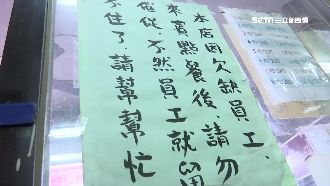 本店因欠缺員工,
來賓點餐後,請勿
催促,不然員工就留
不住了,請幫幫忙
SETN 三立新聞網